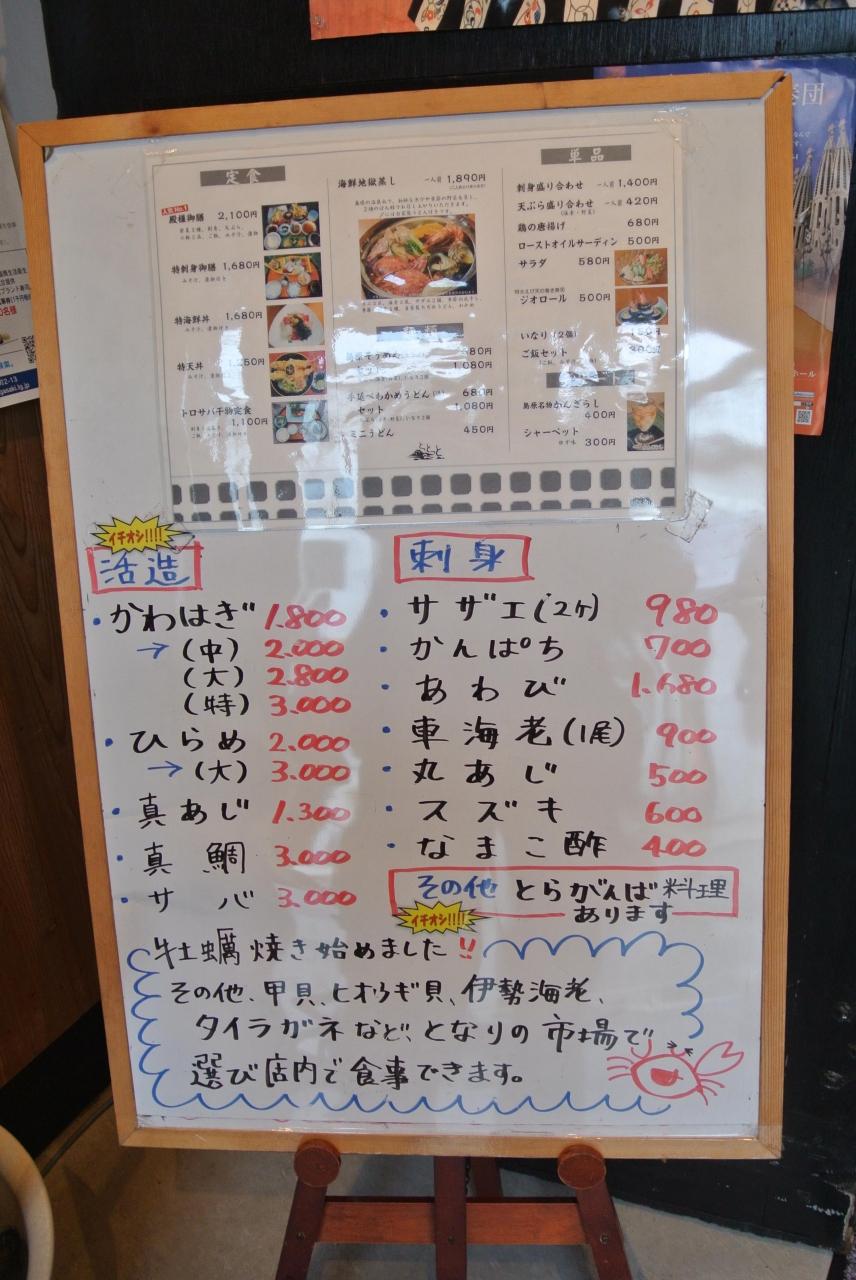 定食
人気No.1
殿様御膳 2,100円
特刺身御膳 1,680円
みそ汁、漬物付き
特海鮮丼 1,680円
みそ汁、漬物付き
特天丼
みそ汁、漬物付き
トロサバ干物定食
1,100円
海鮮地獄蒸し 一人前 1,890円
セット 1,080円
手延べわかめうどん 680円
セット 1,080円
ミニうどん 450円
単品
刺身盛り合わせ 一人前 1,400円
天ぷら盛り合わせ 一人前 420円
(海老・野菜)
鶏の唐揚げ 680円
ローストオイルサーディン 500円
サラダ 580円
ジオロール 500円
いなり(2個)
ご飯セット
島原名物かんざらし
400円
シャーベット
ゆず味 300円
イチオシ!!!!
活造
・かわはぎ 1.800
→(中) 2.000
(大) 2.800
(特) 3.000
・ひらめ 2.000
→(大) 3.000
・真あじ 1.300
・真鯛 3.000
・サバ 3.000
刺身
・サザエ(2ヶ) 980
・かんぱち 700
・あわび 1.680
・車海老(1尾) 900
・丸あじ 500
・スズキ 600
・なまこ酢 400
その他 とらがんば料理
あります
イチオシ!!!!
牡蠣焼き始めました!!
その他、甲貝、ヒオウギ貝、伊勢海老、
タイラガネなど、となりの市場で
選び店内で食事できます。
奏団
ホール